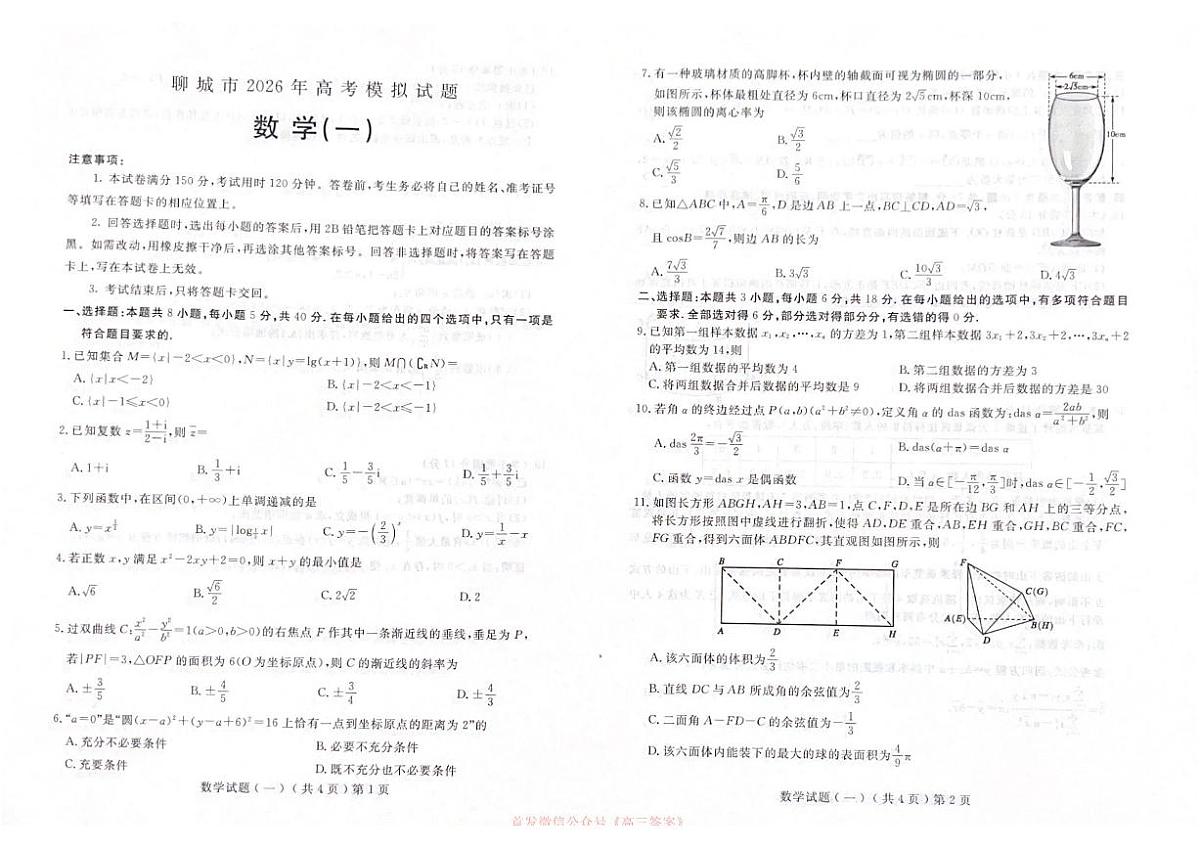 聊城市2026年高考模拟试题
数学(一)
注意事项:
1. 本试卷满分150分,考试用时120分钟。答卷前,考生务必将自己的姓名、准考证号
等填写在答题卡的相应位置上。
2. 回答选择题时,选出每小题的答案后,用2B铅笔把答题卡上对应题目的答案标号涂
黑。如需改动,用橡皮擦干净后,再选涂其他答案标号。回答非选择题时,将答案写在答题
卡上,写在本试卷上无效。
3. 考试结束后,只将答题卡交回。
一、选择题:本题共8小题,每小题5分,共40分.在每小题给出的四个选项中,只有一项是
符合题目要求的.
1.已知集合M={x|-2<x<0},N={x|y=lg(x+1)},则M∩(∁RN)=
A.{x|x<-2} B.{x|-2<x<-1}
C.{x|-1≤x<0} D.{x|-2<x≤-1}
2.已知复数z=(1+i)/(2-i),则z̄=
A.1+i B.1/3+i C.1/5-3/5i D.1/5+3/5i
3.下列函数中,在区间(0,+∞)上单调递减的是
A.y=x^(1/2) B.y=|log½x| C.y=-(2/3)^x D.y=1/x-x
4.若正数x,y满足x²-2xy+2=0,则x+y的最小值是
A.√6 B.√6/2 C.2√2 D.2
5.过双曲线C:x²/a²-y²/b²=1(a>0,b>0)的右焦点F作其中一条渐近线的垂线,垂足为P,
若|PF|=3,△OFP的面积为6(O为坐标原点),则C的渐近线的斜率为
A.±3/5 B.±4/5 C.±3/4 D.±4/3
6.“a=0”是“圆(x-a)²+(y-a+6)²=16上恰有一点到坐标原点的距离为2”的
A.充分不必要条件 B.必要不充分条件
C.充要条件 D.既不充分也不必要条件
数学试题(一)(共4页)第1页
7.有一种玻璃材质的高脚杯,杯内壁的轴截面可视为椭圆的一部分,
如图所示,杯体最粗处直径为6cm,杯口直径为2√5cm,杯深10cm,
则该椭圆的离心率为
A.√2/2 B.√3/2
C.√5/3 D.5/6
6cm
2√5cm
10cm
8.已知△ABC中,A=π/6,D是边AB上一点,BC⊥CD,AD=√3,
且cosB=2√7/7,则边AB的长为
A.7√3/3 B.3√3 C.10√3/3 D.4√3
二、选择题:本题共3小题,每小题6分,共18分.在每小题给出的选项中,有多项符合题目
要求.全部选对得6分,部分选对得部分分,有选错的得0分.
9.已知第一组样本数据x₁,x₂,…,xₙ的方差为1,第二组样本数据3x₁+2,3x₂+2,…,3xₙ+2
的平均数为14,则
A.第一组数据的平均数为4 B.第二组数据的方差为3
C.将两组数据合并后数据的平均数是9 D.将两组数据合并后数据的方差是30
10.若角α的终边经过点P(a,b)(a²+b²≠0),定义角α的das函数为:das α=2ab/(a²+b²),则
A.das 2π/3=-√3/2 B.das(α+π)=das α
C.函数y=das x是偶函数 D.当α∈[-π/12,π/3]时,das α∈[-1/2,√3/2]
11.如图长方形ABGH,AH=3,AB=1,点C,F,D,E是所在边BG和AH上的三等分点,
将长方形按照图中虚线进行翻折,使得AD,DE重合,AB,EH重合,GH,BC重合,FC,
FG重合,得到六面体ABDFC,其直观图如图所示,则
B C F G
A D E H
F
C(G)
A(E) B(H)
D
A.该六面体的体积为2/3
B.直线DC与AB所成角的余弦值为2/3
C.二面角A-FD-C的余弦值为-1/3
D.该六面体内能装下的最大的球的表面积为4/9π
数学试题(一)(共4页)第2页
首发微信公众号《高三答案》